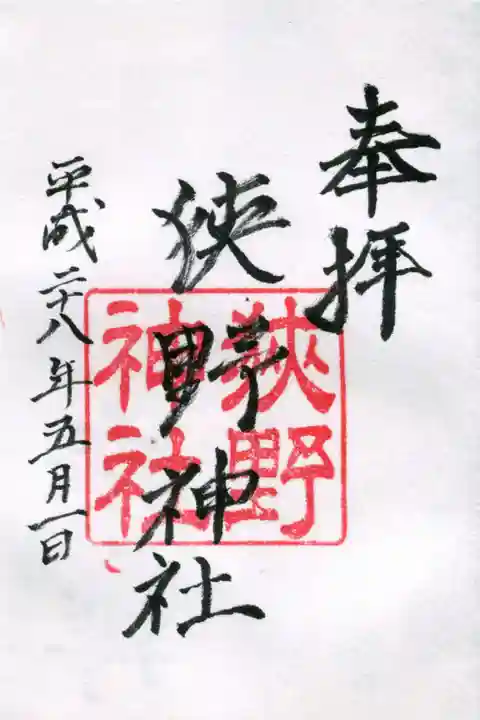 奉拝
狭野神社
狭野
神社
平成二十八年五月一日